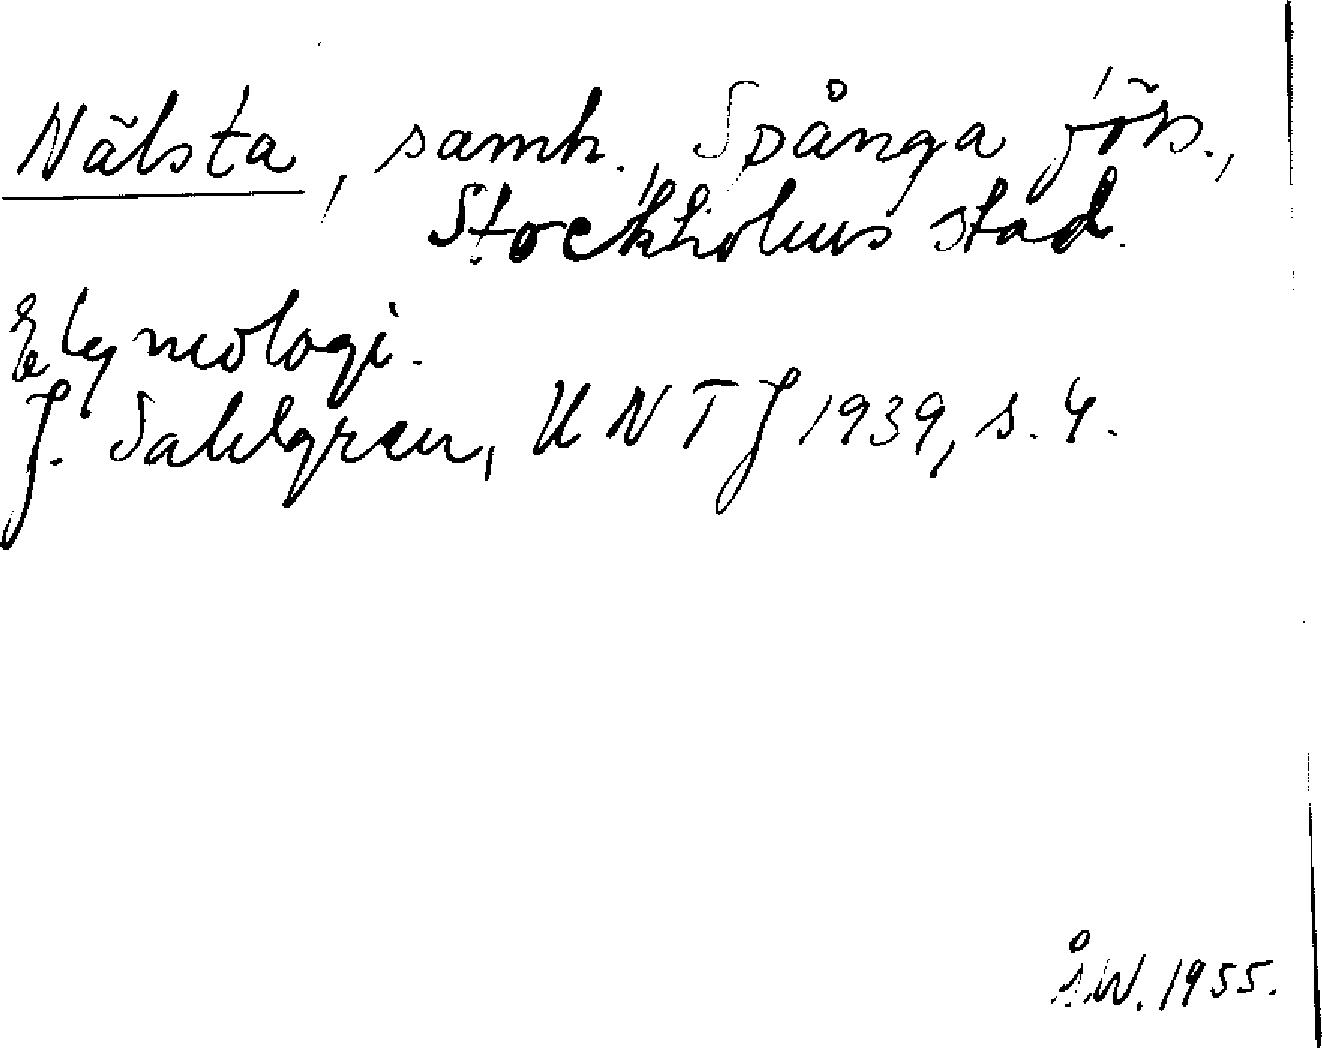 Nälsta, samh., Spånga förs.,
Stockholms stad.
Etymologi.
J. Sahlgren, UNTJ 1939, s. 4.
ÅW. 1955.